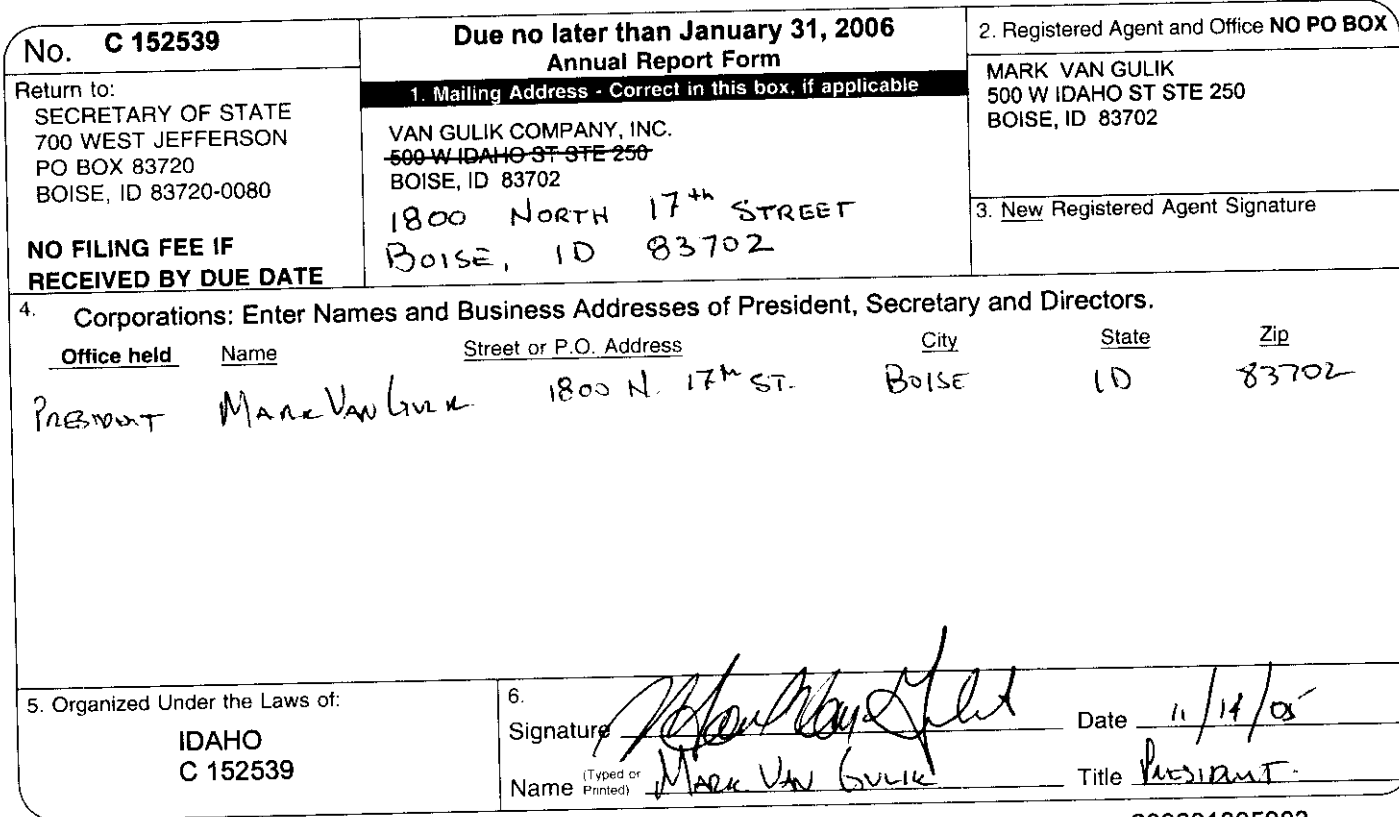 No. C 152539
Return to:
SECRETARY OF STATE
700 WEST JEFFERSON
PO BOX 83720
BOISE, ID 83720-0080
NO FILING FEE IF
RECEIVED BY DUE DATE
Due no later than January 31, 2006
Annual Report Form
1. Mailing Address - Correct in this box, if applicable
VAN GULIK COMPANY, INC.
500 W IDAHO ST STE 250
BOISE, ID 83702
1800 NORTH 17th STREET
BOISE, ID 83702
2. Registered Agent and Office NO PO BOX
MARK VAN GULIK
500 W IDAHO ST STE 250
BOISE, ID 83702
3. New Registered Agent Signature
4. Corporations: Enter Names and Business Addresses of President, Secretary and Directors.
Office held Name Street or P.O. Address City State Zip
PRESIDENT MARK VAN GULIK 1800 N. 17th ST. BOISE ID 83702
5. Organized Under the Laws of:
IDAHO
C 152539
6.
Signature Date 11/14/05
Name (Typed or Printed) MARK VAN GULIK Title PRESIDENT